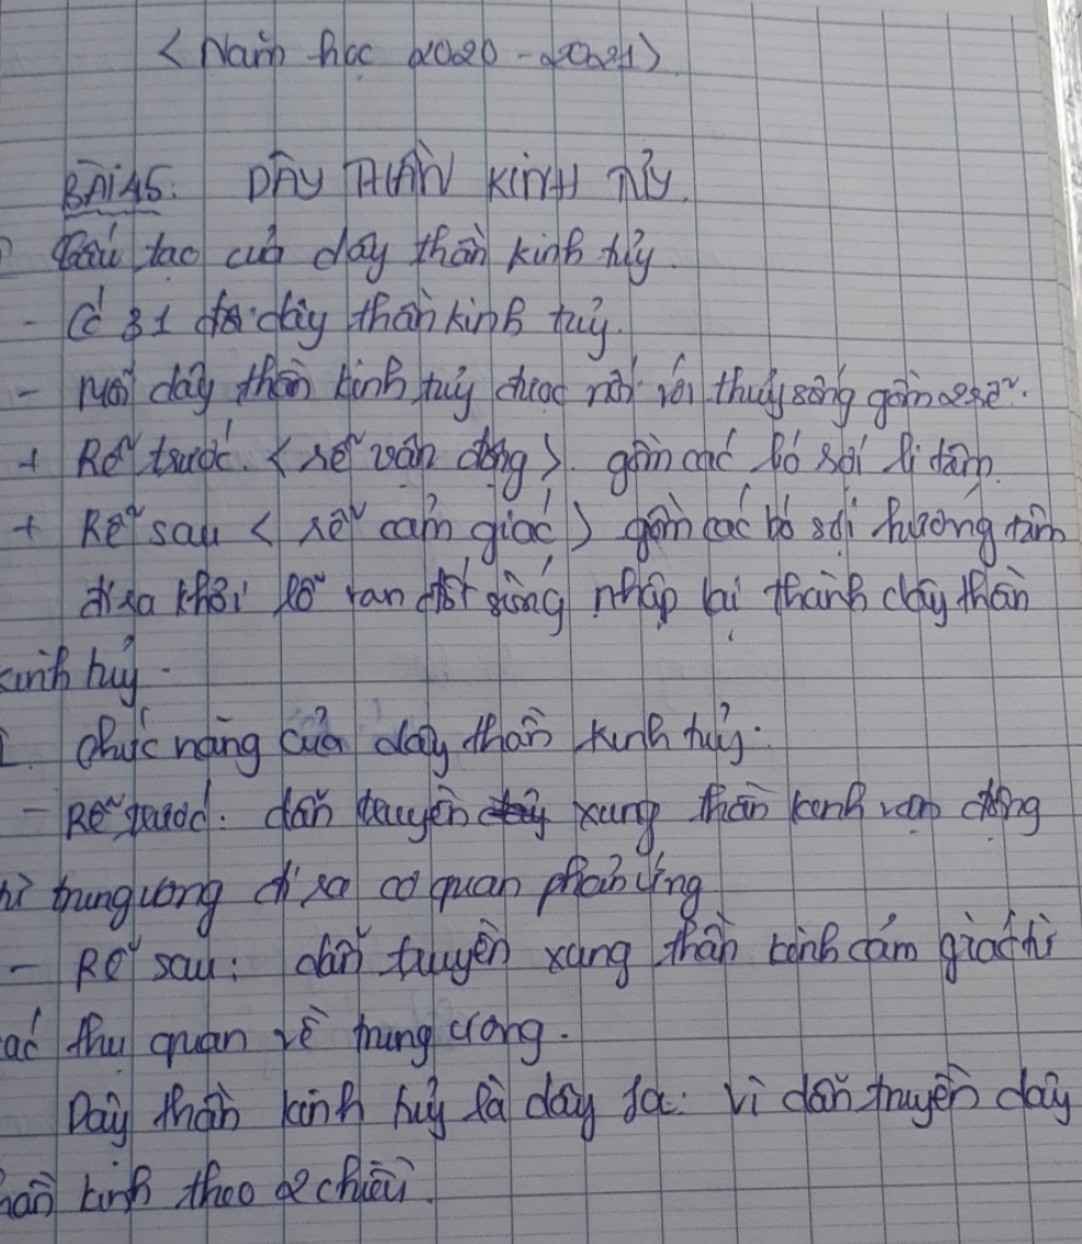 < Năm học 2020 - 2021 >
BÀI 45: DÂY THẦN KINH TỦY.
Cấu tạo của dây thần kinh tủy
- Có 31 đôi dây thần kinh tủy.
- Mỗi dây thần kinh tủy được nối với thuỷ sống gồm 2 rễ.
+ Rễ trước. < rễ vận động > gồm các bó sợi li tâm.
+ Rễ sau < rễ cảm giác > gồm các bó sợi hướng tâm
đi ra khỏi lỗ gian đốt sống nhập lại thành dây thần
kinh tuỷ.
chức năng của dây thần kinh tuỷ:
- Rễ trước: dẫn truyền xung thần kinh vận động
từ trung ương đi ra cơ quan phản ứng
- Rễ sau: dẫn truyền xung thần kinh cảm giác từ
các thu quan về trung ương.
Dây thần kinh tuỷ là dây pha: Vì dẫn truyền dây
thần kinh theo 2 chiều.